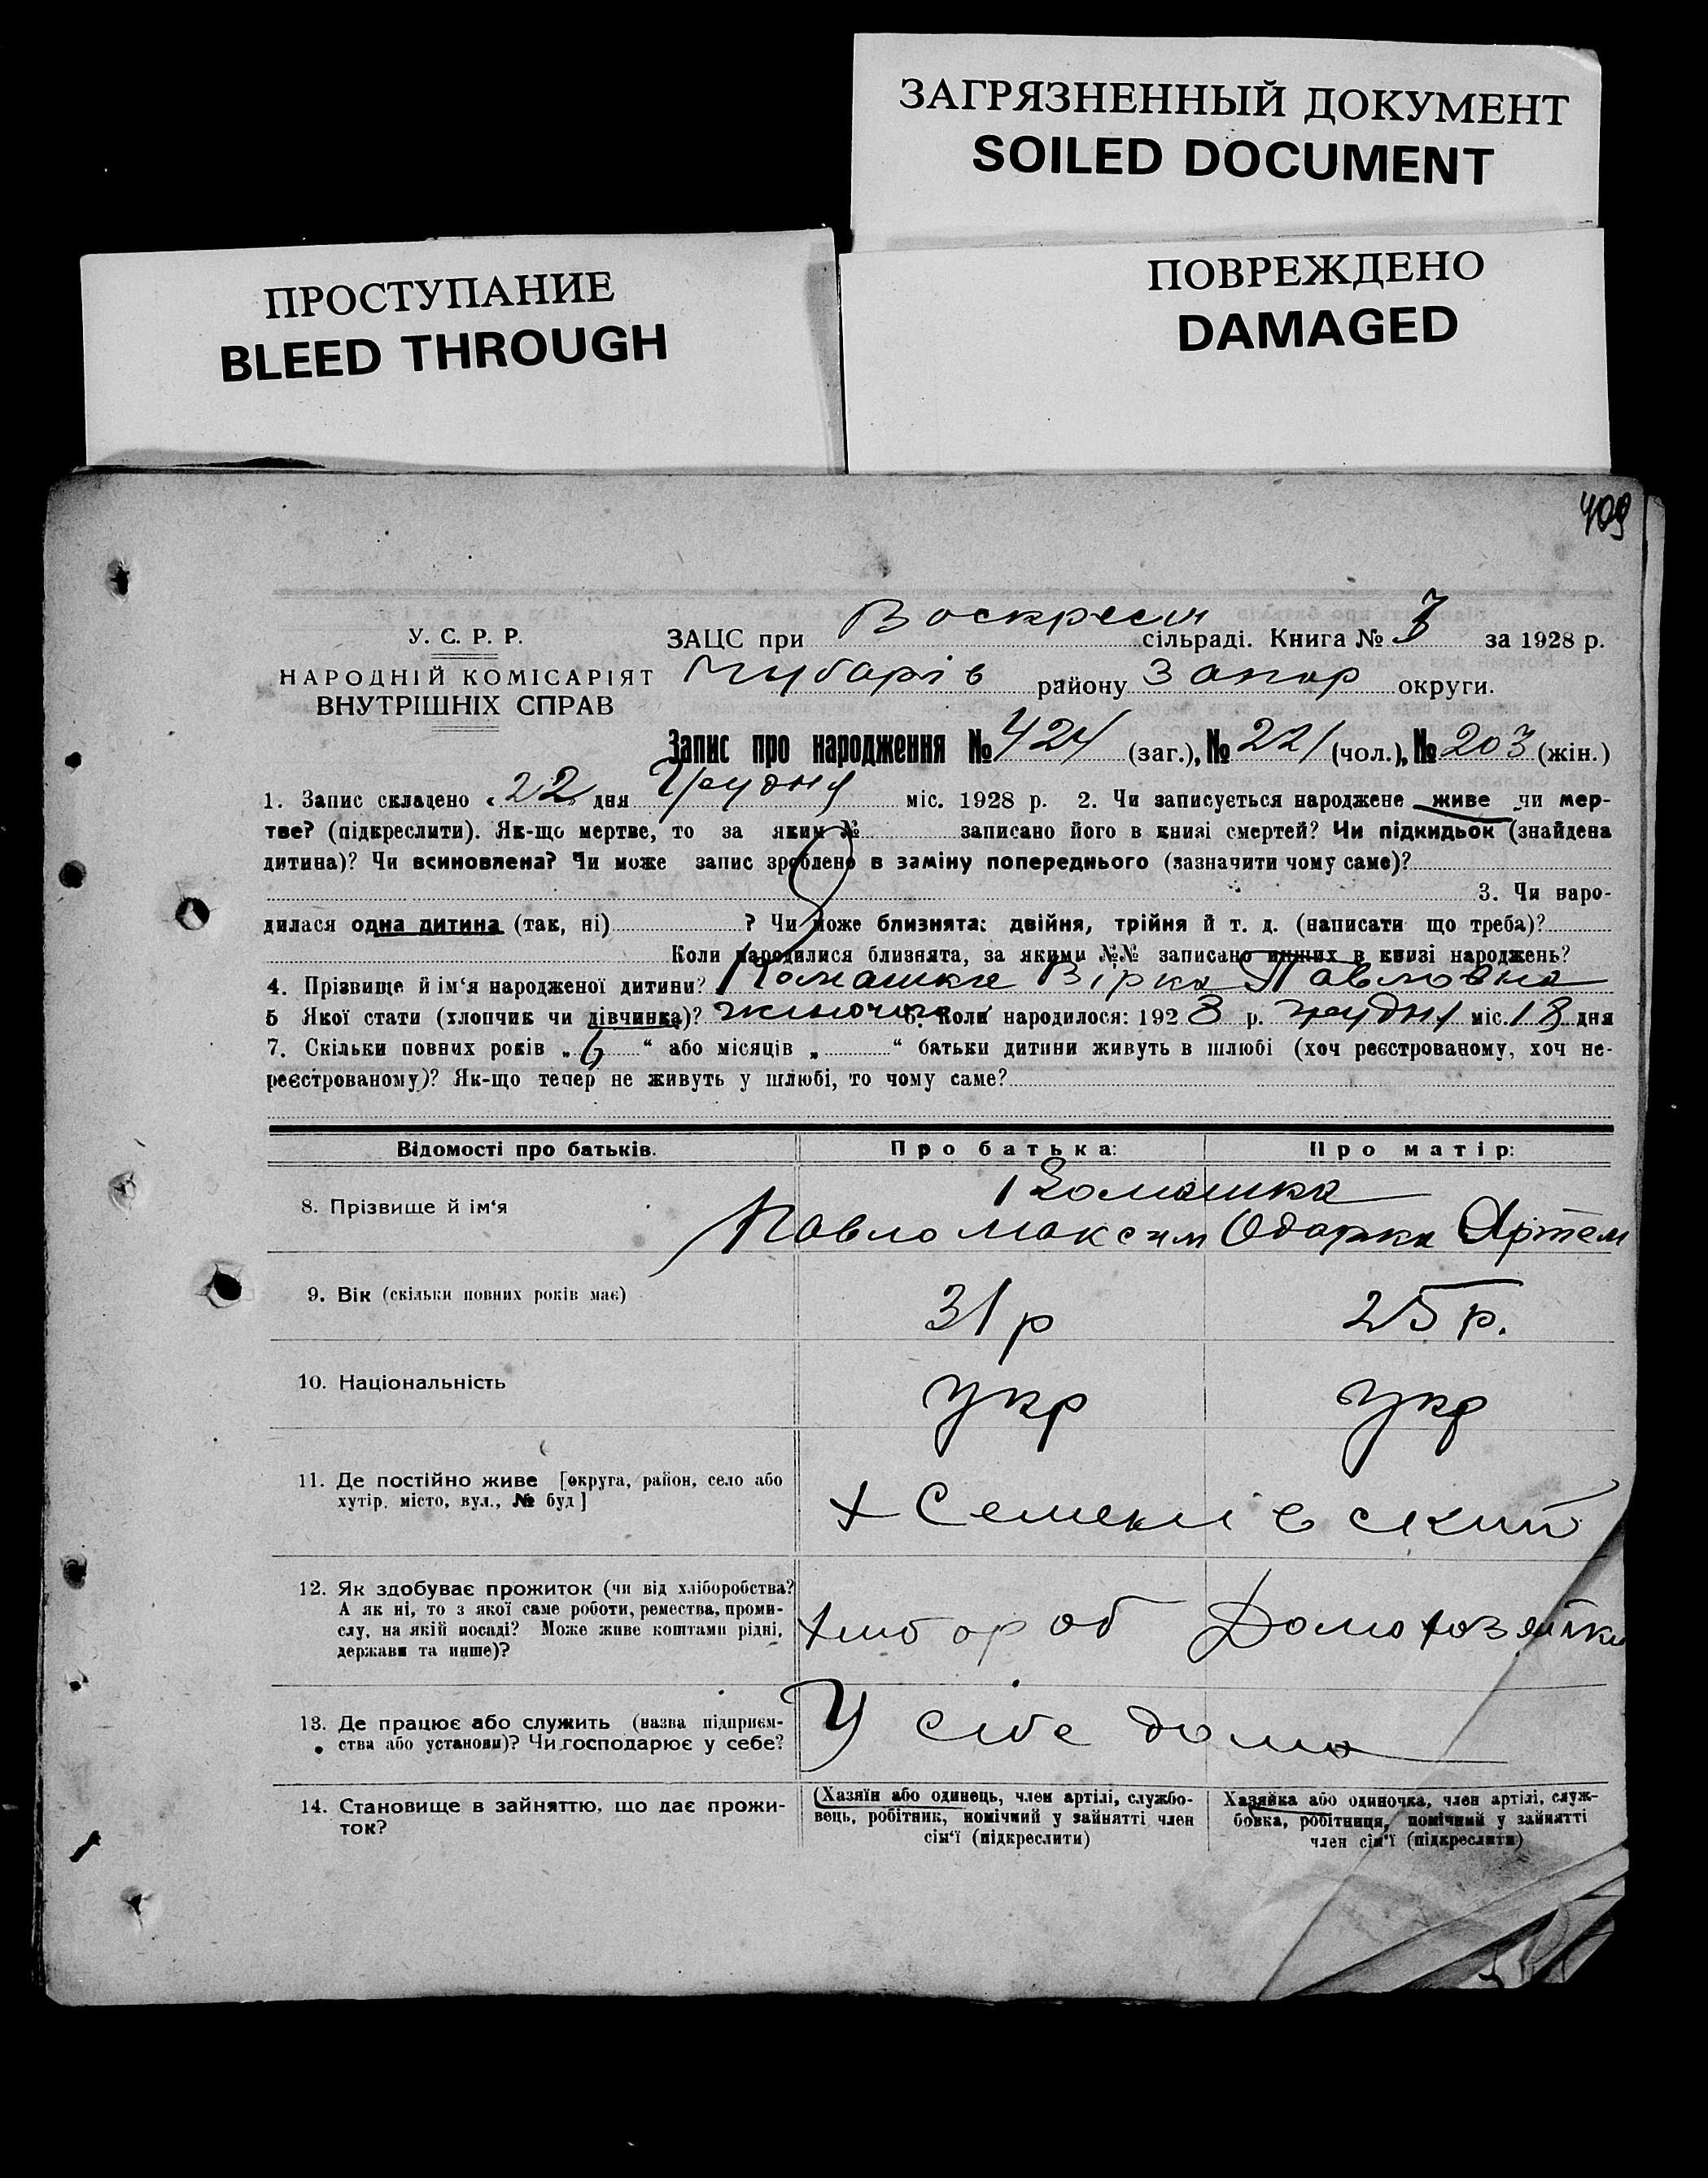 ЗАГРЯЗНЕННЫЙ ДОКУМЕНТ
SOILED DOCUMENT
ПРОСТУПАНИЕ
BLEED THROUGH
ПОВРЕЖДЕНО
DAMAGED
409
У. С. Р. Р.
НАРОДНІЙ КОМІСАРІЯТ
ВНУТРІШНІХ СПРАВ
ЗАЦС при Воскресен сільраді. Книга № 3 за 1928 р.
Чубарів району Запор округи.
Запис про народження № 424 (заг.), № 221 (чол.), № 203 (жін.)
1. Запис складено „22" дня Грудня міс. 1928 р. 2. Чи записується народжене живе чи мер-
тве? (підкреслити). Як-що мертве, то за яким № записано його в книзі смертей? Чи підкидьок (знайдена
дитина)? Чи всиновлена? Чи може запис зроблено в заміну попереднього (зазначити чому саме)?
3. Чи наро-
дилася одна дитина (так, ні) ? Чи може близнята: двійня, трійня й т. д. (написати що треба)?
Коли народилися близнята, за якими №№ записано инших в книзі народжень?
4. Прізвище й ім'я народженої дитини? Вірка Павловна
5 Якої стати (хлопчик чи дівчинка)? жіночої 6. Коли народилося: 1928 р. грудня міс. 18 дня
7. Скільки повних років „6" або місяців „ " батьки дитини живуть в шлюбі (хоч реєстрованому, хоч не-
реєстрованому)? Як-що тепер не живуть у шлюбі, то чому саме?
Відомості про батьків. Про батька: Про матір:
8. Прізвище й ім'я
Павло Максим Одарка Артем
9. Вік (скільки повних років має) 31 р 25 р.
10. Національність Укр Укр
11. Де постійно живе [округа, район, село або
хутір, місто, вул., № буд]
х Семенівский
12. Як здобуває прожиток (чи від хліборобства?
А як ні, то з якої саме роботи, ремества, проми-
слу, на якій посаді? Може живе коштами рідні,
держави та инше)?
хлібороб Домохозяйка
13. Де працює або служить (назва підприєм-
ства або установи)? Чи господарює у себе?
У сібе дома
14. Становище в зайняттю, що дає прожи-
ток?
(Хазяїн або одинець, член артілі, службо-
вець, робітник, помічний у зайнятті член
сім'ї (підкреслити)
Хазяйка або одиночка, член артілі, служ-
бовка, робітниця, помічний у зайнятті
член сім'ї (підкреслити)